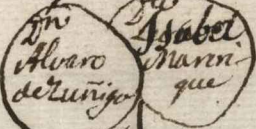 Dn
Alvaro
de Zuñiga
Da
Isabel
Manri-
que